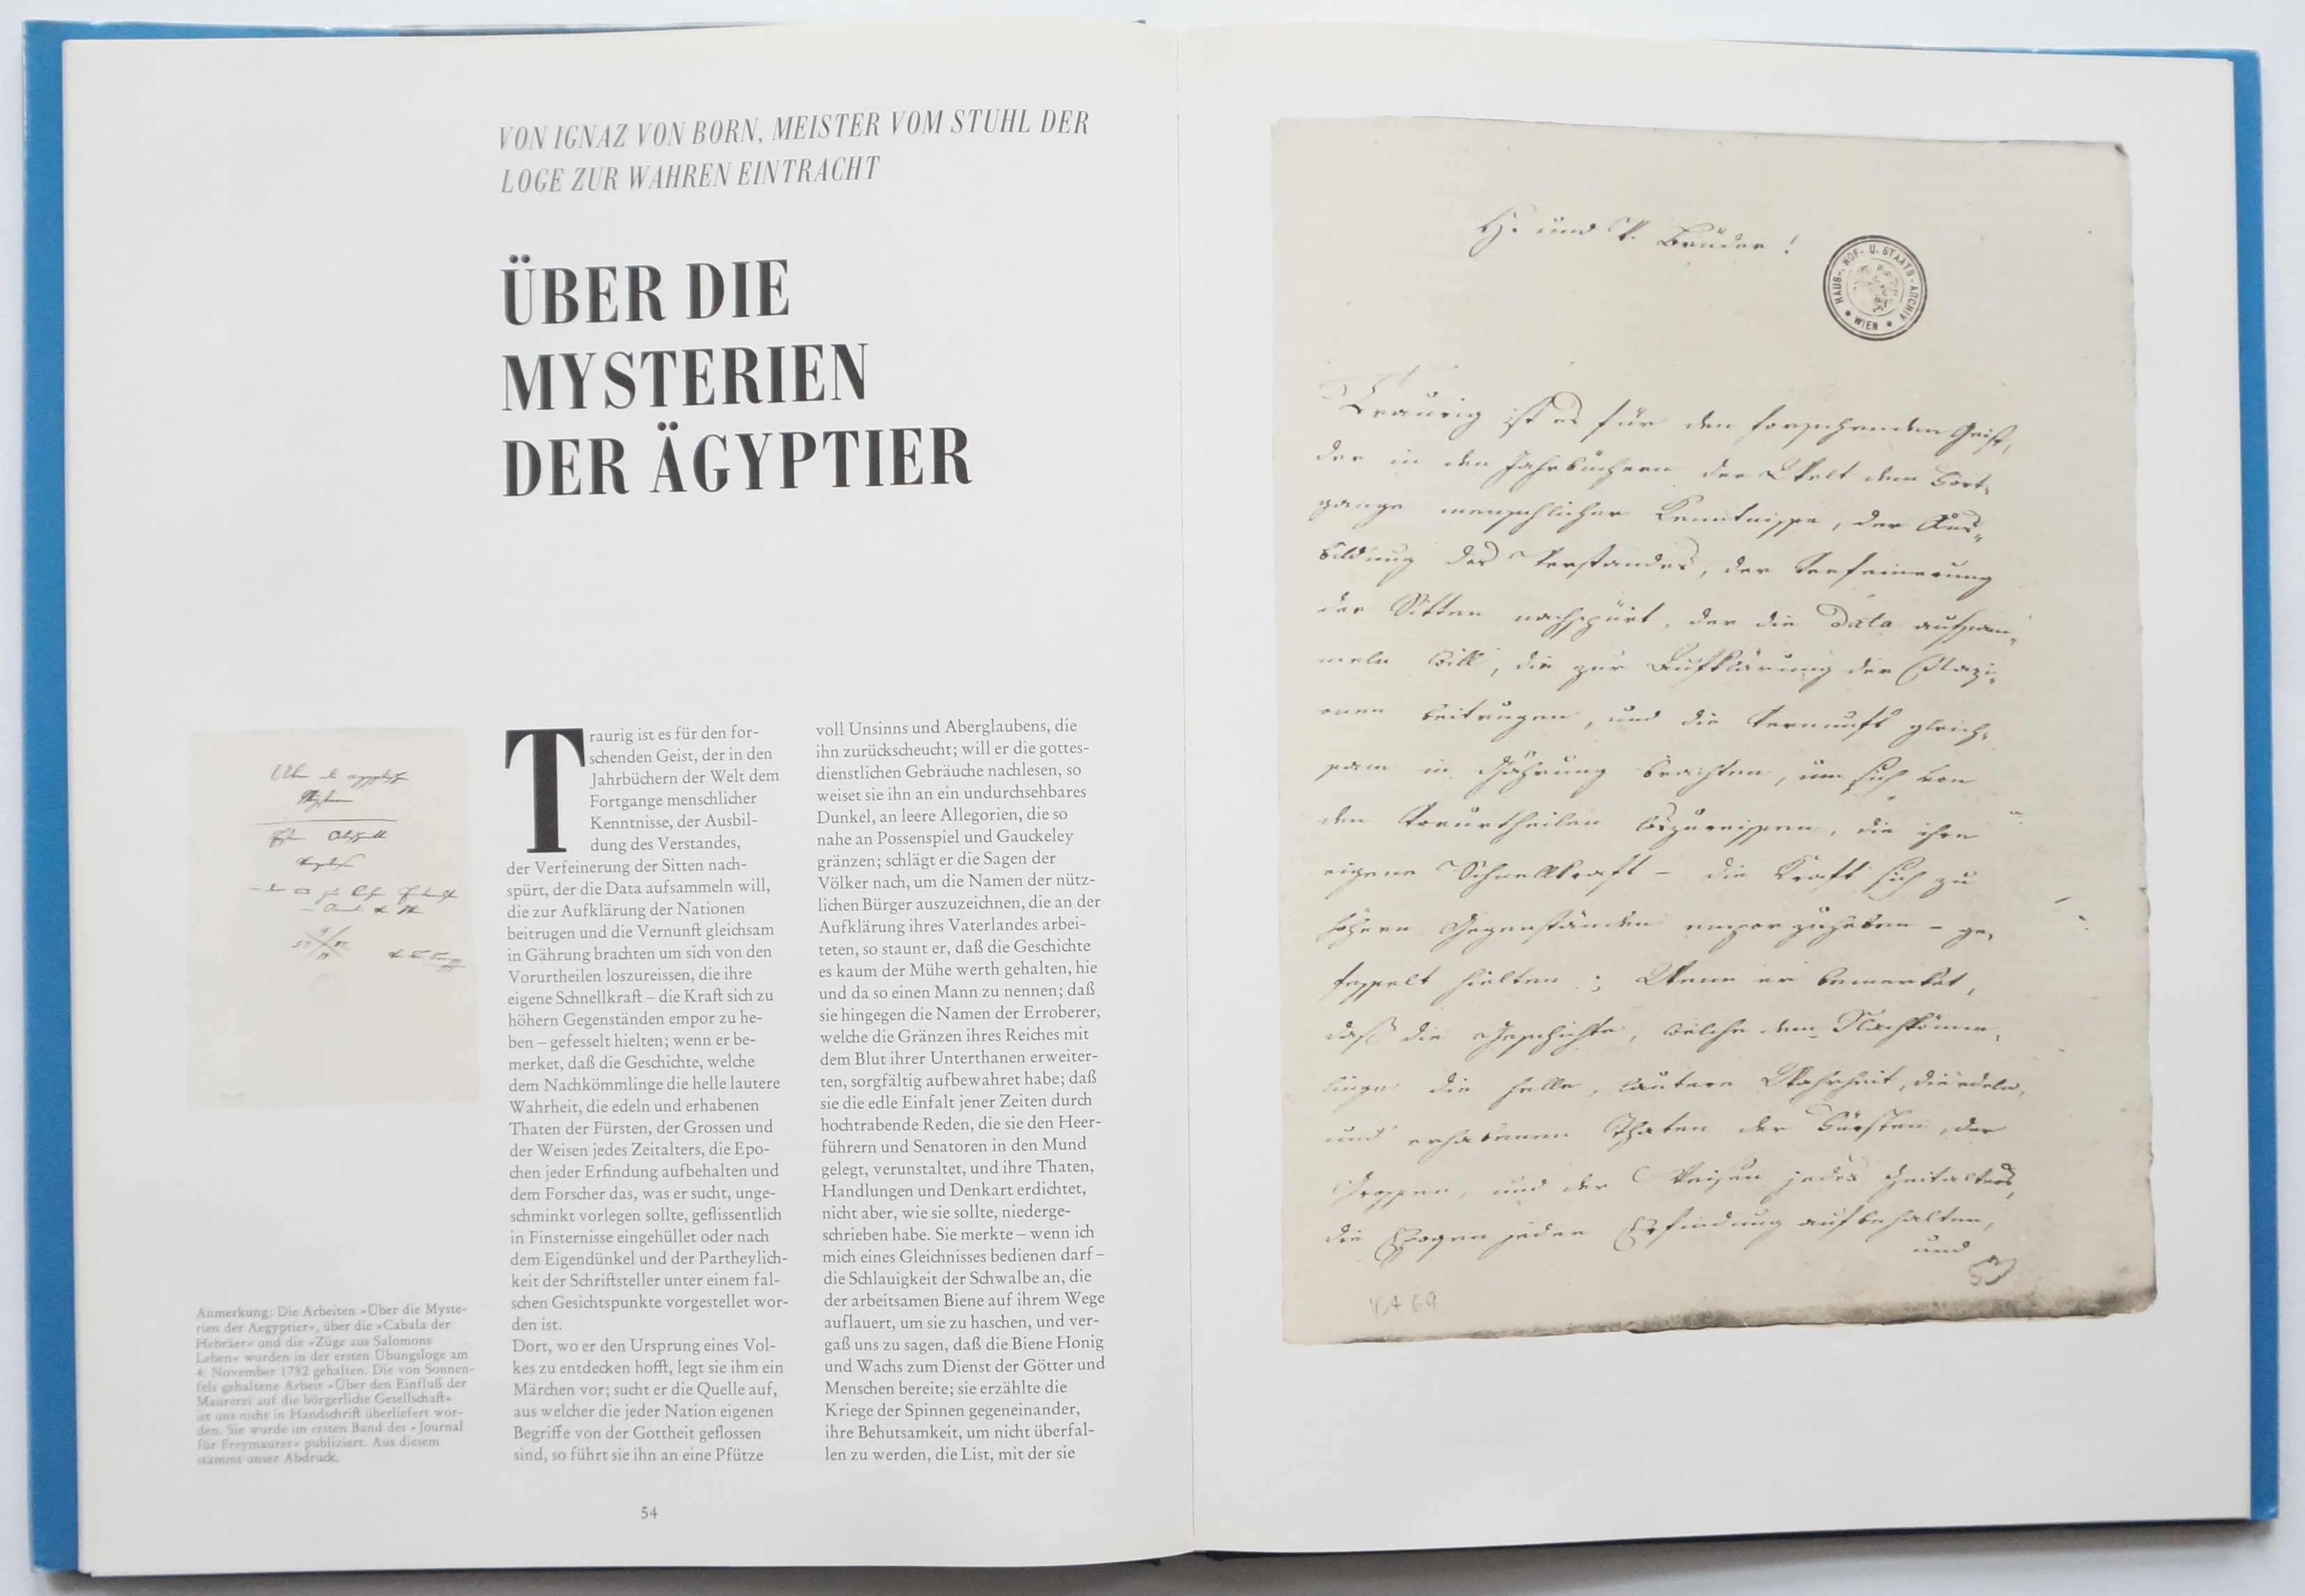 VON IGNAZ VON BORN, MEISTER VOM STUHL DER
LOGE ZUR WAHREN EINTRACHT
ÜBER DIE
MYSTERIEN
DER ÄGYPTIER
Traurig ist es für den for-
schenden Geist, der in den
Jahrbüchern der Welt dem
Fortgange menschlicher
Kenntnisse, der Ausbil-
dung des Verstandes,
der Verfeinerung der Sitten nach-
spürt, der die Data aufsammeln will,
die zur Aufklärung der Nationen
beitrugen und die Vernunft gleichsam
in Gährung brachten um sich von den
Vorurtheilen loszureissen, die ihre
eigene Schnellkraft – die Kraft sich zu
höhern Gegenständen empor zu he-
ben – gefesselt hielten; wenn er be-
merket, daß die Geschichte, welche
dem Nachkömmlinge die helle lautere
Wahrheit, die edeln und erhabenen
Thaten der Fürsten, der Grossen und
der Weisen jedes Zeitalters, die Epo-
chen jeder Erfindung aufbehalten und
dem Forscher das, was er sucht, unge-
schminkt vorlegen sollte, geflissentlich
in Finsternisse eingehüllet oder nach
dem Eigendünkel und der Partheylich-
keit der Schriftsteller unter einem fal-
schen Gesichtspunkte vorgestellet wor-
den ist.
Dort, wo er den Ursprung eines Vol-
kes zu entdecken hofft, legt sie ihm ein
Märchen vor; sucht er die Quelle auf,
aus welcher die jeder Nation eigenen
Begriffe von der Gottheit geflossen
sind, so führt sie ihn an eine Pfütze
voll Unsinns und Aberglaubens, die
ihn zurückscheucht; will er die gottes-
dienstlichen Gebräuche nachlesen, so
weiset sie ihn an ein undurchsehbares
Dunkel, an leere Allegorien, die so
nahe an Possenspiel und Gauckeley
gränzen; schlägt er die Sagen der
Völker nach, um die Namen der nütz-
lichen Bürger auszuzeichnen, die an der
Aufklärung ihres Vaterlandes arbei-
teten, so staunt er, daß die Geschichte
es kaum der Mühe werth gehalten, hie
und da so einen Mann zu nennen; daß
sie hingegen die Namen der Erroberer,
welche die Gränzen ihres Reiches mit
dem Blut ihrer Unterthanen erweiter-
ten, sorgfältig aufbewahret habe; daß
sie die edle Einfalt jener Zeiten durch
hochtrabende Reden, die sie den Heer-
führern und Senatoren in den Mund
gelegt, verunstaltet, und ihre Thaten,
Handlungen und Denkart erdichtet,
nicht aber, wie sie sollte, niederge-
schrieben habe. Sie merkte – wenn ich
mich eines Gleichnisses bedienen darf –
die Schlauigkeit der Schwalbe an, die
der arbeitsamen Biene auf ihrem Wege
auflauert, um sie zu haschen, und ver-
gaß uns zu sagen, daß die Biene Honig
und Wachs zum Dienst der Götter und
Menschen bereite; sie erzählte die
Kriege der Spinnen gegeneinander,
ihre Behutsamkeit, um nicht überfal-
len zu werden, die List, mit der sie
Anmerkung: Die Arbeiten »Über die Myste-
rien der Aegyptier«, über die »Cabala der
Hebräer« und die »Züge aus Salomons
Leben« wurden in der ersten Übungsloge am
4. November 1782 gehalten. Die von Sonnen-
fels gehaltene Arbeit »Über den Einfluß der
Maurerei auf die bürgerliche Gesellschaft«
ist uns nicht in Handschrift überliefert wor-
den. Sie wurde im ersten Band des »Journal
für Freymaurer« publiziert. Aus diesem
stammt unser Abdruck.
54
und Brüder!
HAUS-, HOF- U. STAATS-ARCHIV
* WIEN *
Traurig ist es für den forschenden Geist,
der in den Jahrbüchern der Welt dem Fort-
gange menschlicher Kenntnisse, der Aus-
bildung des Verstandes, der Verfeinerung
der Sitten nachspürt, der die Data aufsam-
meln will, die zur Aufklärung der Nazi-
onen beitrugen, und die Vernunft gleich-
sam in Gährung brachten, um sich von
den Vorurtheilen loszureissen, die ihre
eigene Schnellkraft – die Kraft sich zu
höhern Gegenständen emporzuheben – ge-
fesselt hielten; Wenn er bemerket,
daß die Geschichte, welche dem Nachkömm-
linge die helle, lautere Wahrheit, die edeln,
und erhabenen Thaten der Fürsten, der
Grossen, und der Weisen jedes Zeitalters,
die Epochen jeder Erfindung aufbehalten,
und